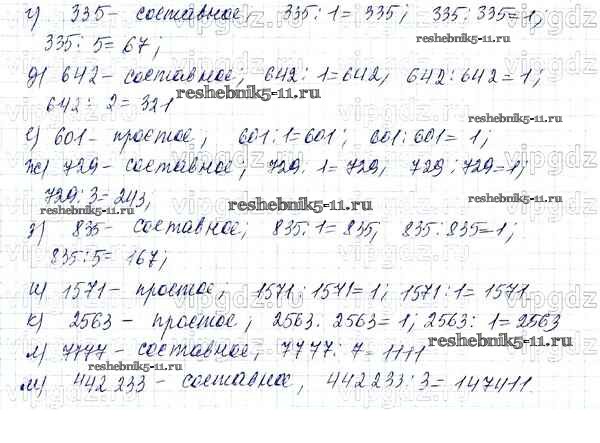 г) 335 - составное, 335:1=335; 335:335=1;
335:5=67;
reshebnik5-11.ru
д) 642 - составное; 642:1=642, 642:642=1;
642:2=321
reshebnik5-11.ru
е) 601 - простое, 601:1=601; 601:601=1;
ж) 729 - составное, 729:1=729, 729:729=1;
729:3=243,
reshebnik5-11.ru
reshebnik5-11.ru
з) 835 - составное; 835:1=835, 835:835=1;
835:5=167;
и) 1571 - простое; 1571:1571=1; 1571:1=1571
к) 2563 - простое, 2563:2563=1; 2563:1=2563
reshebnik5-11.ru
л) 7777 - составное, 7777:7=1111
reshebnik5-11.ru
м) 442 233 - составное, 442 233:3=147411.
vipgdz